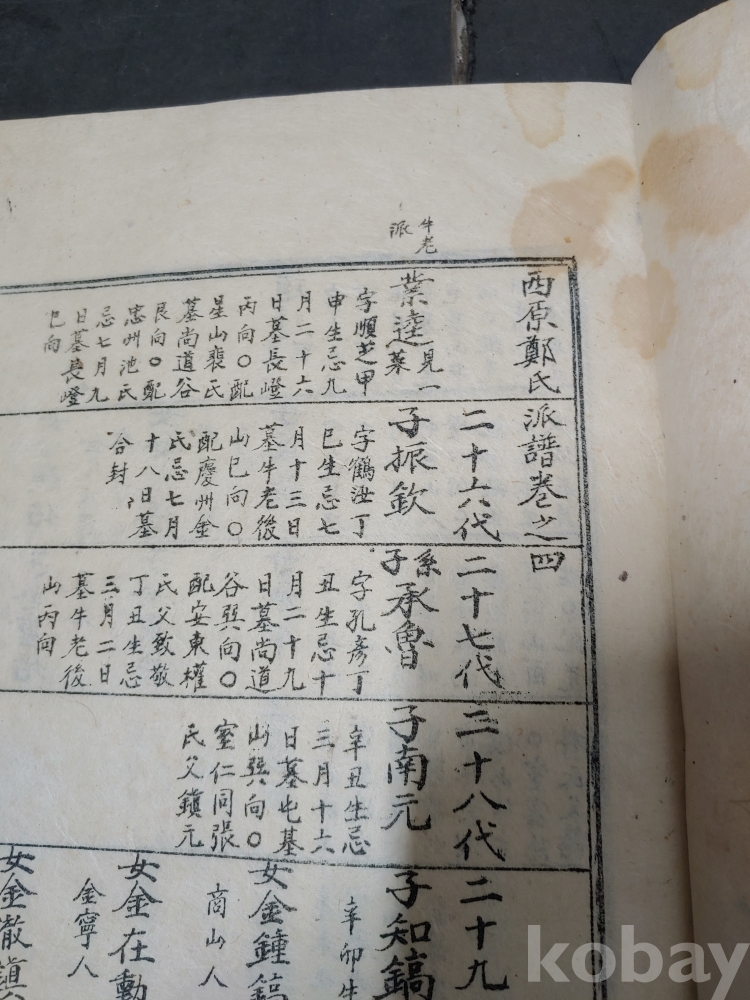 牛老
派
西原鄭氏派譜卷之四
二十六代
二十七代
二十八代
二十九
業達
見一
葉
字順芝甲
申生忌九
月二十六
日墓長嶝
丙向○配
星山裵氏
墓尚道谷
艮向○配
忠州池氏
忌七月九
日墓長嶝
巳向
子振欽
字鶴汝丁
巳生忌七
月十三日
墓牛老後
山巳向○
配慶州金
氏忌七月
十八日墓
合封
系子承魯
字孔彥丁
丑生忌十
月二十九
日墓尚道
谷巽向○
配安東權
氏父致敬
丁丑生忌
三月二日
墓牛老後
山丙向
子南元
辛丑生忌
三月十六
日墓屯基
山巽向○
室仁同張
氏父鎮元
子知鎬
辛卯生
女金鍾鎬
商山人
女金在動
金寧人
女金徹鎮
kobay